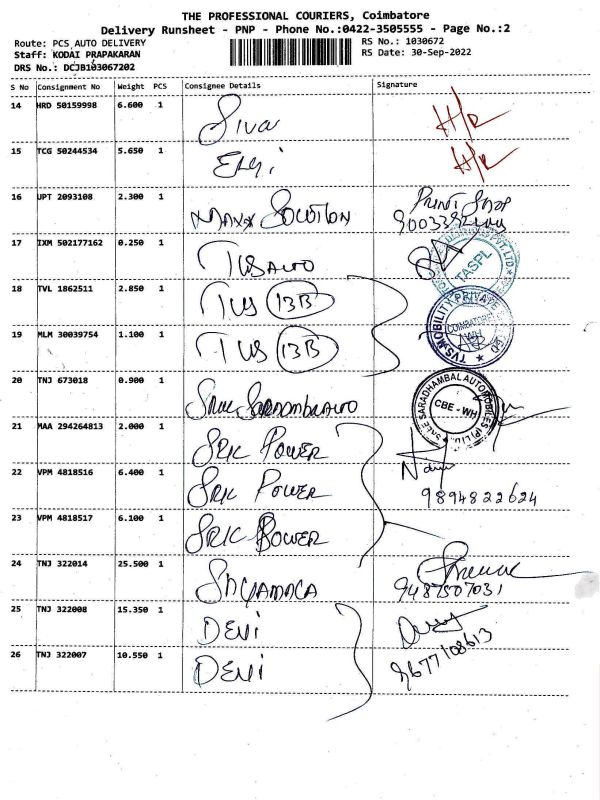 THE PROFESSIONAL COURIERS, Coimbatore
Delivery Runsheet - PNP - Phone No.:0422-3505555 - Page No.:2
Route: PCS AUTO DELIVERY RS No.: 1030672
Staff: KODAI PRAPAKARAN RS Date: 30-Sep-2022
DRS No.: DCJB103067202
S No Consignment No Weight PCS Consignee Details Signature
14 HRD 50159998 6.600 1 Siva H/R
15 TCG 50244534 5.650 1 Elgi H/R
16 UPT 2093108 2.300 1 Maxx Solution Print Shop
17 IXM 502177162 0.250 1 TVS Auto TASPL
18 TVL 1862511 2.850 1 TVS 13B
19 MLM 30039754 1.100 1 TVS 13B TVS MOBILITY PRIVATE COIMBATORE WH
20 TNJ 673018 0.900 1 SARADHAMBAL AUTOMOBILES (P) LTD. CBE - WH
21 MAA 294264813 2.000 1 SRK Power
22 VPM 4818516 6.400 1 SRK Power 9894822624
23 VPM 4818517 6.100 1 SRK Power
24 TNJ 322014 25.500 1 9487507031
25 TNJ 322008 15.350 1 DEVI
26 TNJ 322007 10.550 1 DEVI 9677108613